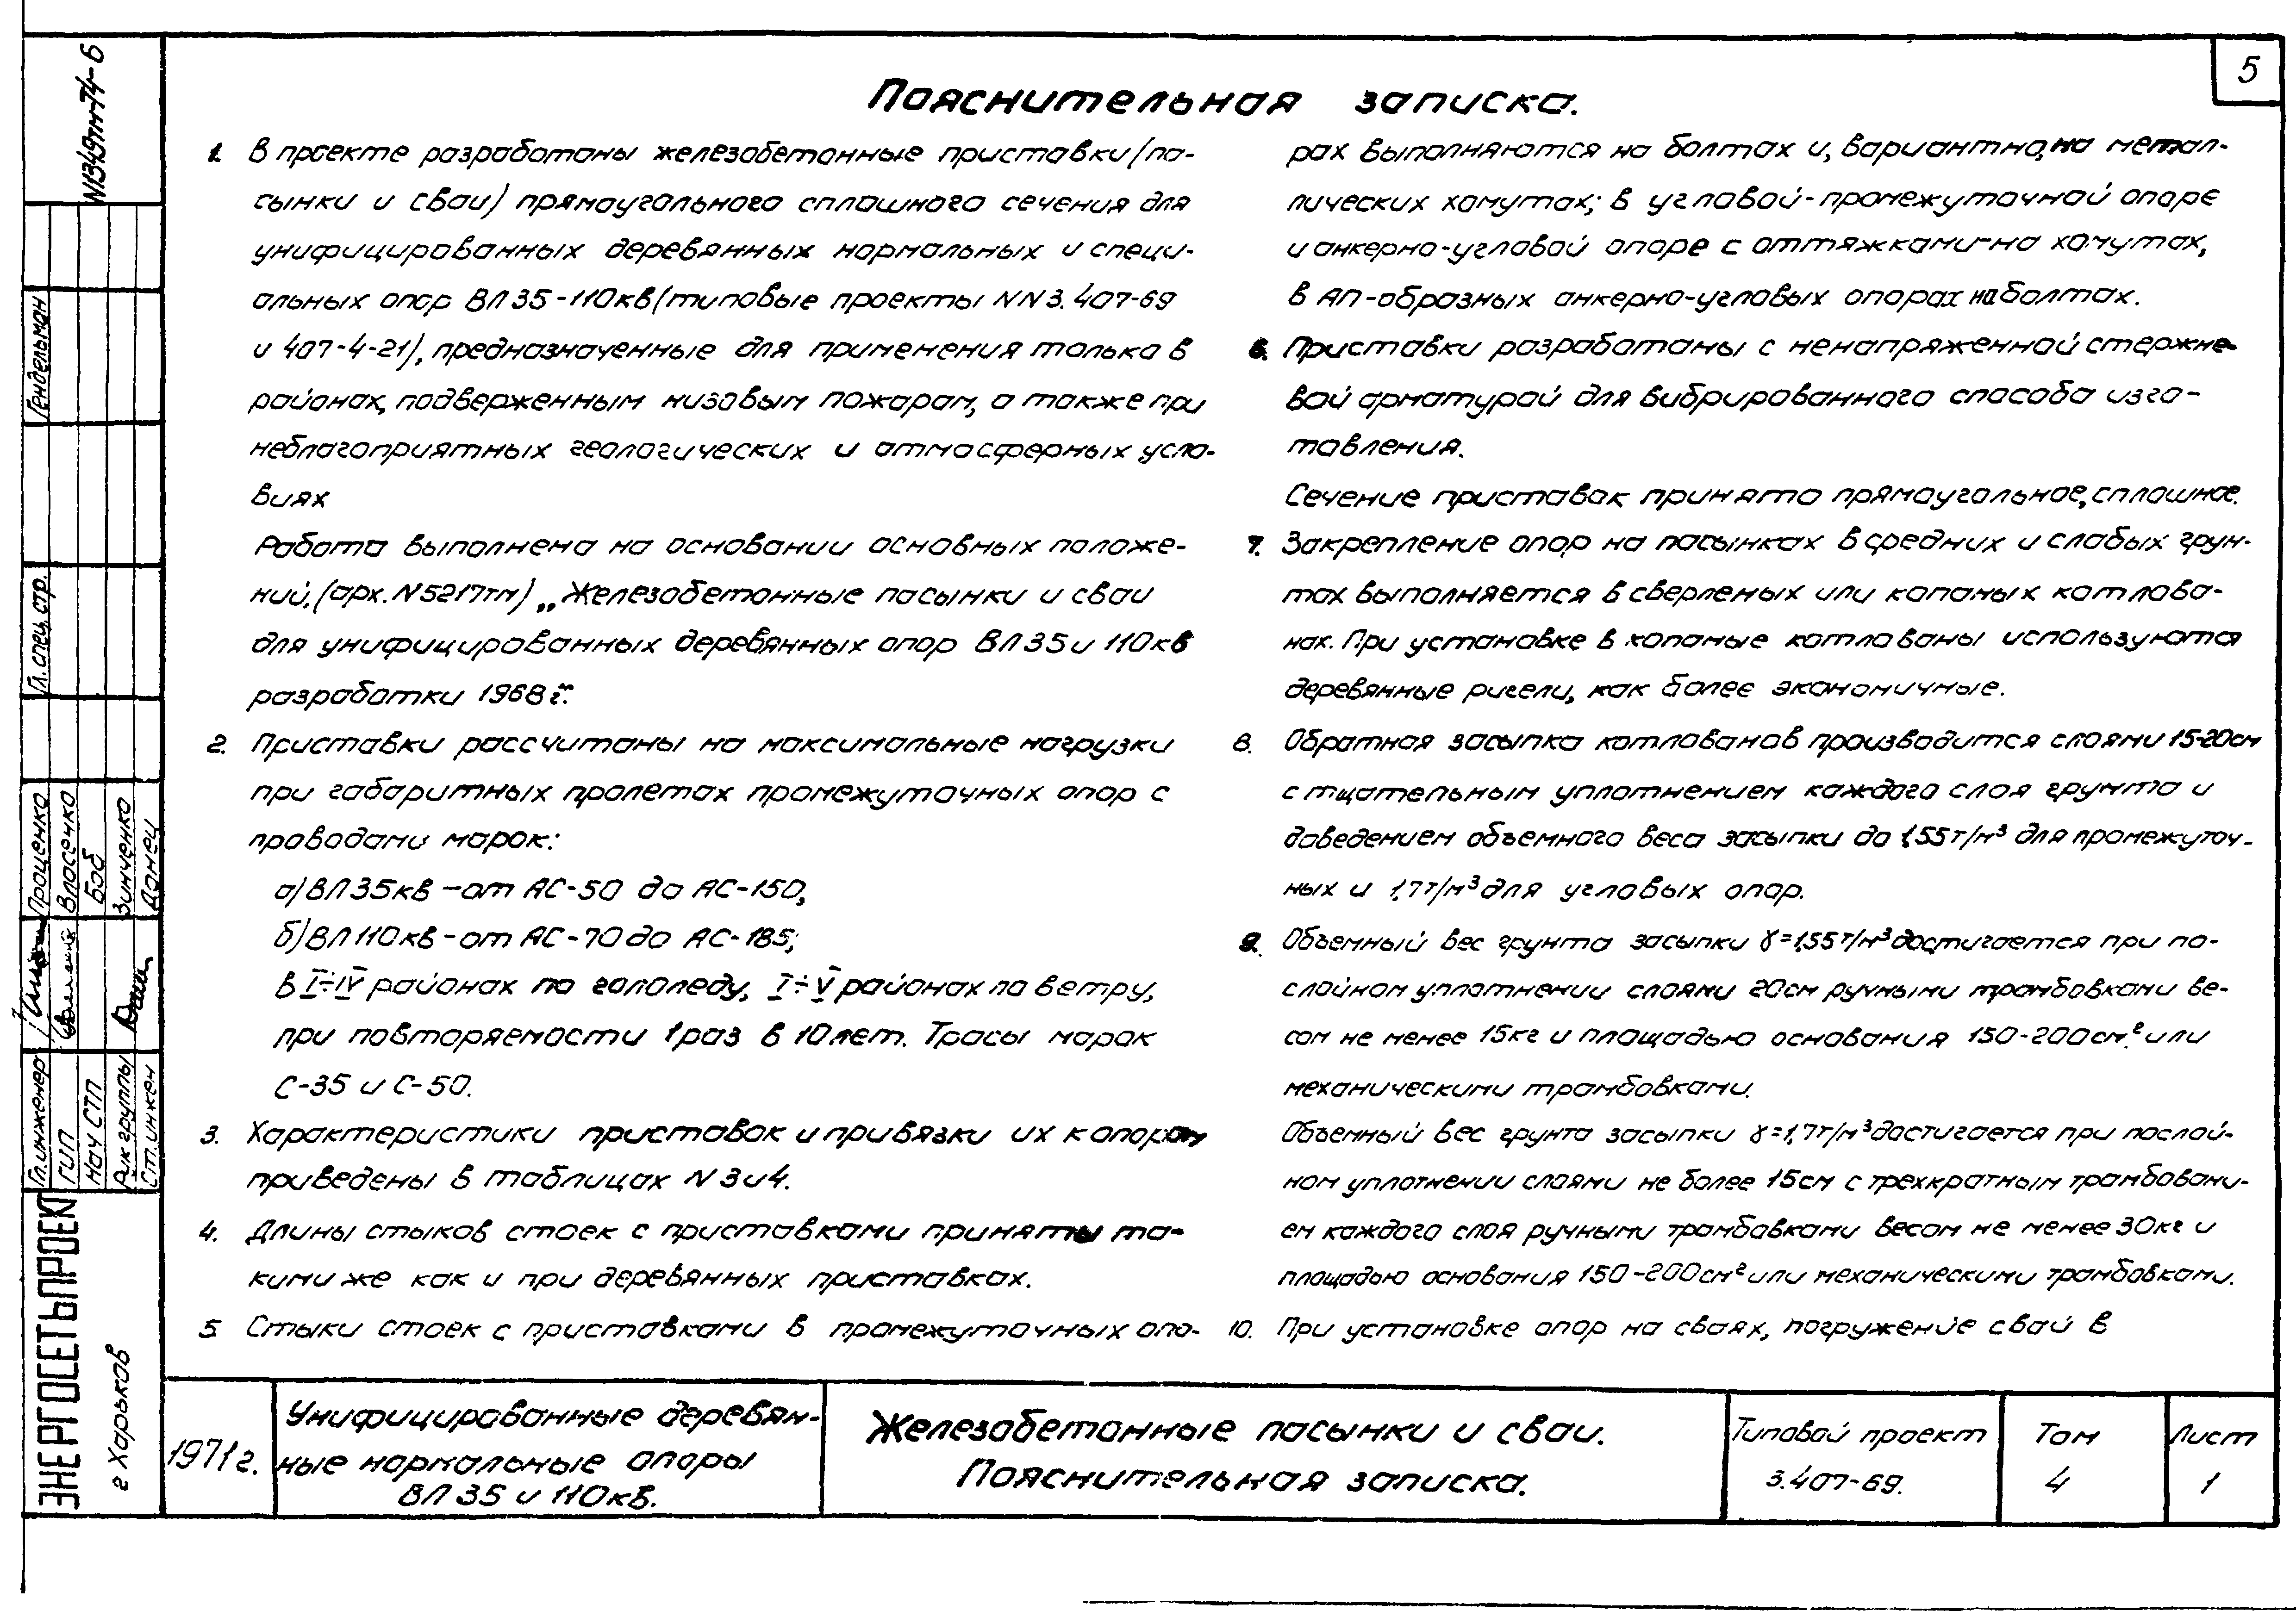 5
Пояснительная записка.
1. В проекте разработаны железобетонные приставки (па-
сынки и сваи) прямоугольного сплошного сечения для
унифицированных деревянных нормальных и специ-
альных опор ВЛ 35-110кв (типовые проекты NN 3.407-69
и 407-4-21), предназначенные для применения только в
районах, подверженным низовым пожарам, а также при
неблагоприятных геологических и атмосферных усло-
виях
Работа выполнена на основании основных положе-
ний, (арх. N5217тм) „Железобетонные пасынки и сваи
для унифицированных деревянных опор ВЛ 35 и 110кв
разработки 1968г."
2. Приставки рассчитаны на максимальные нагрузки
при габаритных пролетах промежуточных опор с
проводами марок:
а) ВЛ 35кв – от АС-50 до АС-150,
б) ВЛ 110кв – от АС-70 до АС-185;
в I÷IV районах по гололеду, I÷V районах по ветру,
при повторяемости 1 раз в 10 лет. Тросы марок
С-35 и С-50.
3. Характеристики приставок и привязки их к опорам
приведены в таблицах N 3 и 4.
4. Длины стыков стоек с приставками приняты та-
кими же как и при деревянных приставках.
5. Стыки стоек с приставками в промежуточных опо-
рах выполняются на болтах и, вариантно, на метал-
лических хомутах; в угловой-промежуточной опоре
и анкерно-угловой опоре с оттяжками-на хомутах,
в АП-образных анкерно-угловых опорах на болтах.
6. Приставки разработаны с ненапряженной стержне-
вой арматурой для вибрированного способа изго-
товления.
Сечение приставок принято прямоугольное, сплошное.
7. Закрепление опор на пасынках в средних и слабых грун-
тах выполняется в сверленых или копаных котлова-
нах. При установке в копаные котлованы используются
деревянные ригели, как более экономичные.
8. Обратная засыпка котлованов производится слоями 15-20см
с тщательным уплотнением каждого слоя грунта и
доведением объемного веса засыпки до 1,55т/м³ для промежуточ-
ных и 1,7т/м³ для угловых опор.
9. Объемный вес грунта засыпки γ=1,55т/м³ достигается при по-
слойном уплотнении слоями 20см ручными трамбовками ве-
сом не менее 15кг и площадью основания 150-200см.² или
механическими трамбовками.
Объемный вес грунта засыпки γ=1,7т/м³ достигается при послой-
ном уплотнении слоями не более 15см с трехкратным трамбовани-
ем каждого слоя ручными трамбовками весом не менее 30кг и
площадью основания 150-200см² или механическими трамбовками.
10. При установке опор на сваях, погружение свай в
N1349тм-Т4-6
Гендельман
Гл. спец. стр.
Проценко
Власечко
Боб
Зинченко
Донец
Гл.инженер
ГИП
Нач СТП
Рук группы
Ст. инжен
ЭНЕРГОСЕТЬПРОЕКТ
г Харьков
1971г.
Унифицированные деревян-
ные нормальные опоры
ВЛ 35 и 110кв.
Железобетонные пасынки и сваи.
Пояснительная записка.
Типовой проект
3.407-69.
Том
4
Лист
1